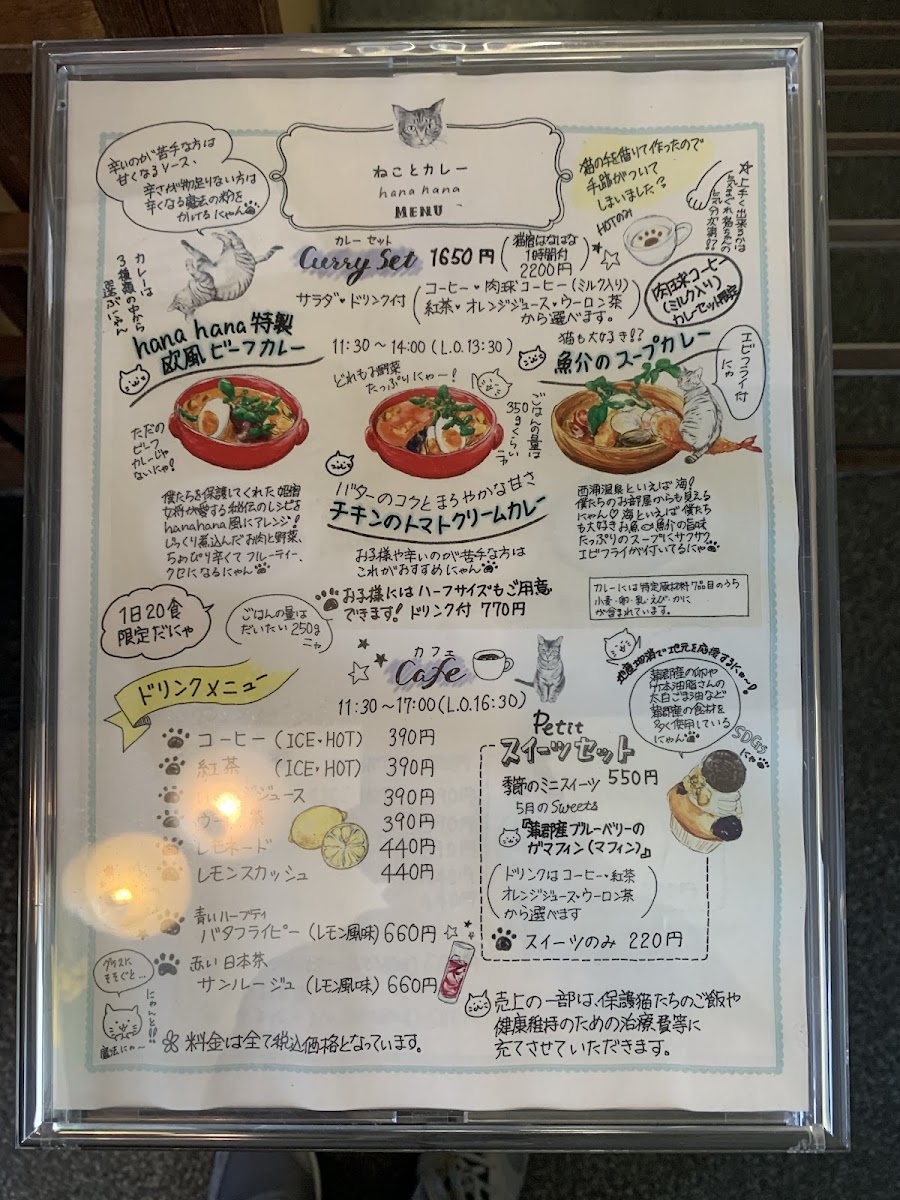 ねことカレー
hana hana
MENU
辛いのが苦手な方は
甘くなるソース、
辛さが物足りない方は
辛くなる魔法の粉を
かけるにゃん
猫の手を借りて作ったので
手跡がついて
しまいました?
HOTのみ
カレーは
3種類の中から
選ぶにゃん
カレーセット
Curry Set 1650円
(猫宿はなはな
1時間付
2200円)
サラダ・ドリンク付
(コーヒー・肉球コーヒー(ミルク入り)
紅茶・オレンジジュース・ウーロン茶
から選べます。)
肉球コーヒー
(ミルク入り)
カレーセット限定
11:30〜14:00(L.O.13:30)
hana hana特製
欧風ビーフカレー
ただの
ビーフ
カレーじゃ
ないにゃ!
僕たちを保護してくれた姫宿
女将が愛する秘伝のレシピを
hanahana風にアレンジ!
じっくり煮込んだお肉と野菜、
ちょっぴり辛くてフルーティー、
クセになるにゃん
どれもお野菜
たっぷりにゃー!
ごはんの量は
350gくらい
ニャ
バターのコクとまろやかな甘さ
チキンのトマトクリームカレー
お子様や辛いのが苦手な方は
これがおすすめにゃん
お子様にはハーフサイズもご用意
できます! ドリンク付 770円
猫も大好き!?
魚介のスープカレー
エビフライ付
にゃ
西浦温泉といえば海!
僕たちのお部屋からも見える
にゃん♡海といえば僕たち
も大好きお魚 魚介の旨味
たっぷりのスープにサクサク
エビフライが付いてるにゃん
カレーには特定原材料7品目のうち
小麦・卵・乳・えび・かに
が含まれています。
1日20食
限定だにゃ
ごはんの量は
だいたい250g
ニャ
カフェ
Cafe
11:30〜17:00(L.O.16:30)
ドリンクメニュー
コーヒー(ICE・HOT) 390円
紅茶 (ICE・HOT) 390円
ジュース 390円
ウーロン茶 390円
レモネード 440円
レモンスカッシュ 440円
青いハーブティ
バタフライピー(レモン風味)660円
赤い日本茶
サンルージュ(レモン風味)660円
グラスに
そそぐと…
にゃんと!!
魔法にゃ〜
料金は全て税込価格となっています。
地産地消で地元を応援するにゃー!
蒲郡産の卵や
竹本油脂さんの
太白ごま油など
蒲郡産の食材を
多く使用している
にゃん
SDGs
にゃ
Petit
スイーツセット
季節のミニスイーツ 550円
5月のSweets
『蒲郡産ブルーベリーの
ガマフィン(マフィン)』
(ドリンクはコーヒー・紅茶
オレンジジュース・ウーロン茶
から選べます)
スイーツのみ 220円
売上の一部は、保護猫たちのご飯や
健康維持のための治療費等に
充てさせていただきます。